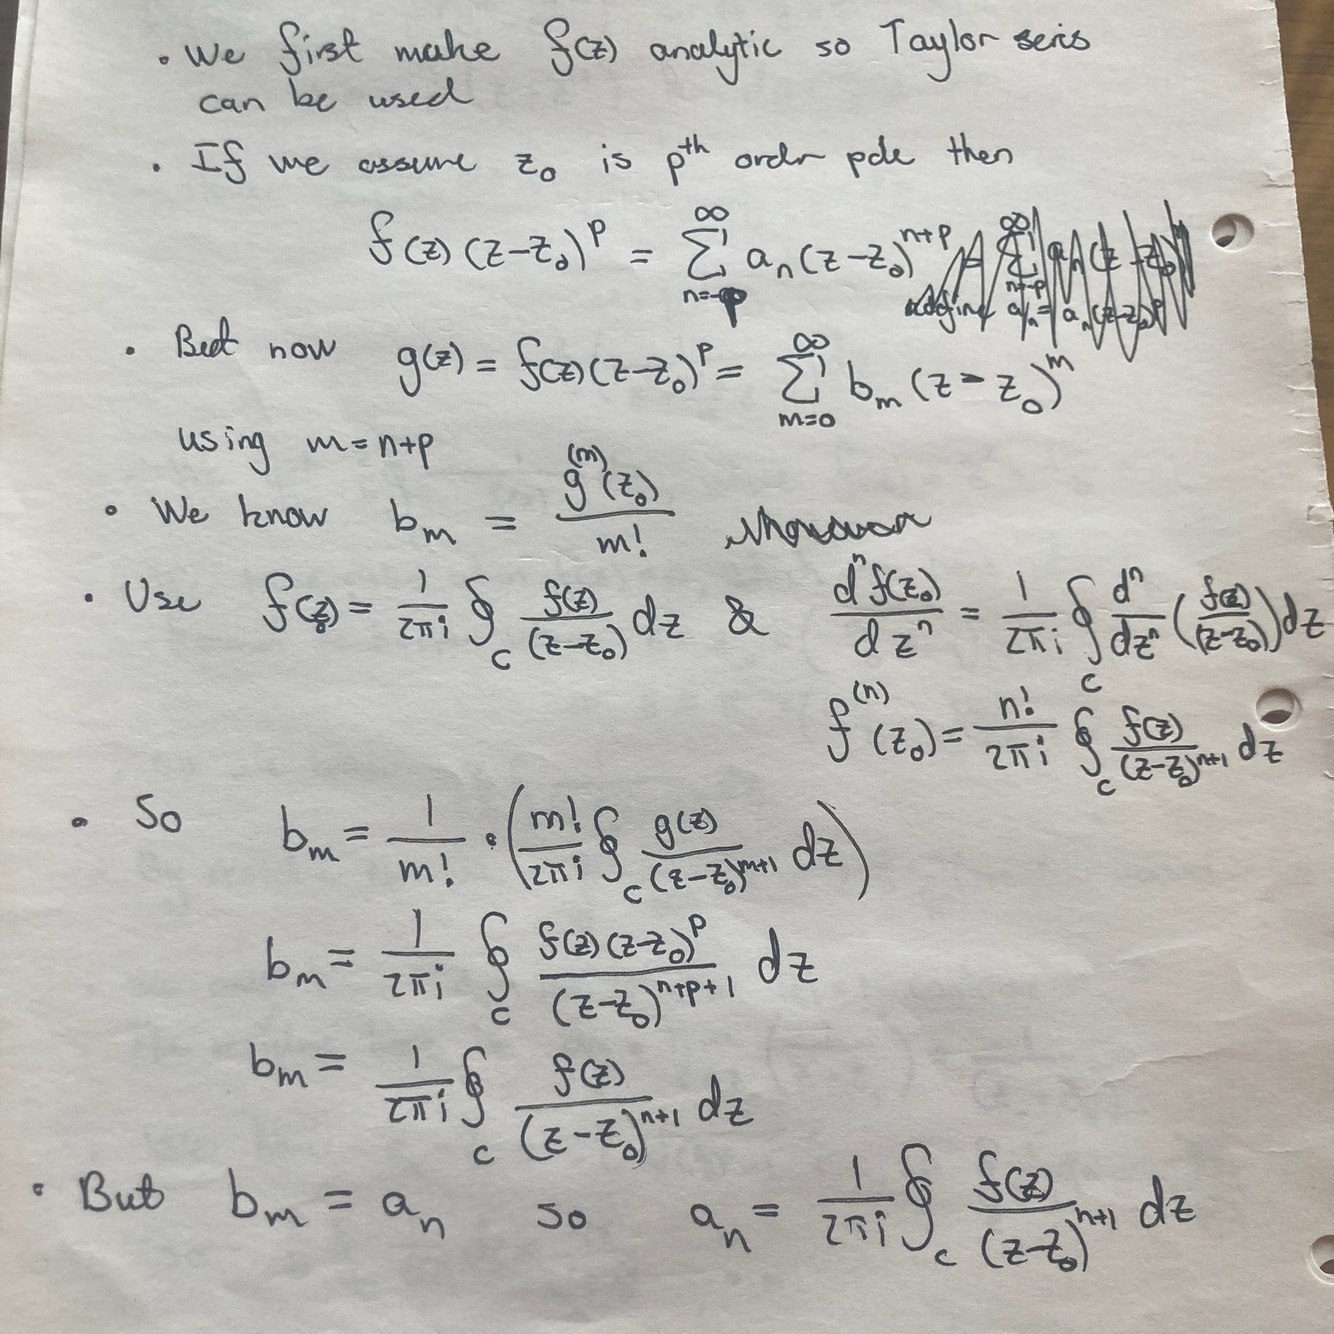 • We first make f(z) analytic so Taylor seris
can be used
• If we assume z₀ is pᵗʰ ordr pole then
f(z)(z-z₀)^p = ∑_{n=-p}^{∞} a_n(z-z₀)^{n+p}
• But now g(z) = f(z)(z-z₀)^p = ∑_{m=0}^{∞} b_m(z-z₀)^m
using m=n+p
• We know b_m = g^{(m)}(z₀)/m!
• Use f(z₀) = 1/(2πi) ∮_C f(z)/(z-z₀) dz & dⁿf(z₀)/dzⁿ = 1/(2πi) ∮_C dⁿ/dzⁿ (f(z)/(z-z₀)) dz
f^{(n)}(z₀) = n!/(2πi) ∮_C f(z)/(z-z₀)^{n+1} dz
• So b_m = 1/m! • (m!/(2πi) ∮_C g(z)/(z-z₀)^{m+1} dz)
b_m = 1/(2πi) ∮_C f(z)(z-z₀)^p/(z-z₀)^{n+p+1} dz
b_m = 1/(2πi) ∮_C f(z)/(z-z₀)^{n+1} dz
• But b_m = a_n so a_n = 1/(2πi) ∮_C f(z)/(z-z₀)^{n+1} dz